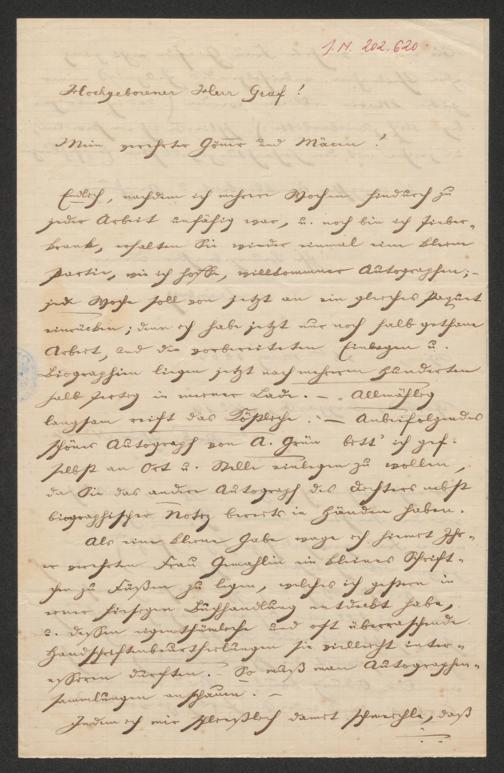 I. N. 202.620
Hochgeborener Herr Graf!
Mein verehrter Gönner und Mäcen!
Endlich, nachdem ich mehrere Wochen hindurch zu
jeder Arbeit unfähig war, u. noch bin ich fieber-
krank, erhalten Sie wieder einmal eine kleine
Partie, wie ich hoffe, willkommener Autographen; –
jede Woche soll von jetzt an ein gleiches Paquet
einrücken; denn ich habe jetzt nur noch halb gethane
Arbeit, und die vorbereiteten Einlagen u.
Biographien liegen jetzt nach mehreren Hunderten
halb fertig in meiner Lade. – Allmählig
langsam reift das Köstliche. – Anbeifolgendes
schönes Autograph von A. Grün bitt' ich gef.
selbst an Ort u. Stelle einlegen zu wollen,
da Sie das andere Autograph des Dichters nebst
biographischer Notiz bereits in Händen haben.
Als eine kleine Gabe wage ich hiemit Ihr-
er verehrten Frau Gemahlin ein kleines Schrift-
chen zu Füßen zu legen, welches ich gestern in
einer hiesigen Buchhandlung entdeckt habe,
u. dessen eigenthümliche und oft überraschende
Handschriftenbeurtheilungen sie vielleicht inter-
essiren dürften. – So muß man Autographen-
sammlungen anschauen. –
Indem ich mir schließlich damit schmeichle, daß